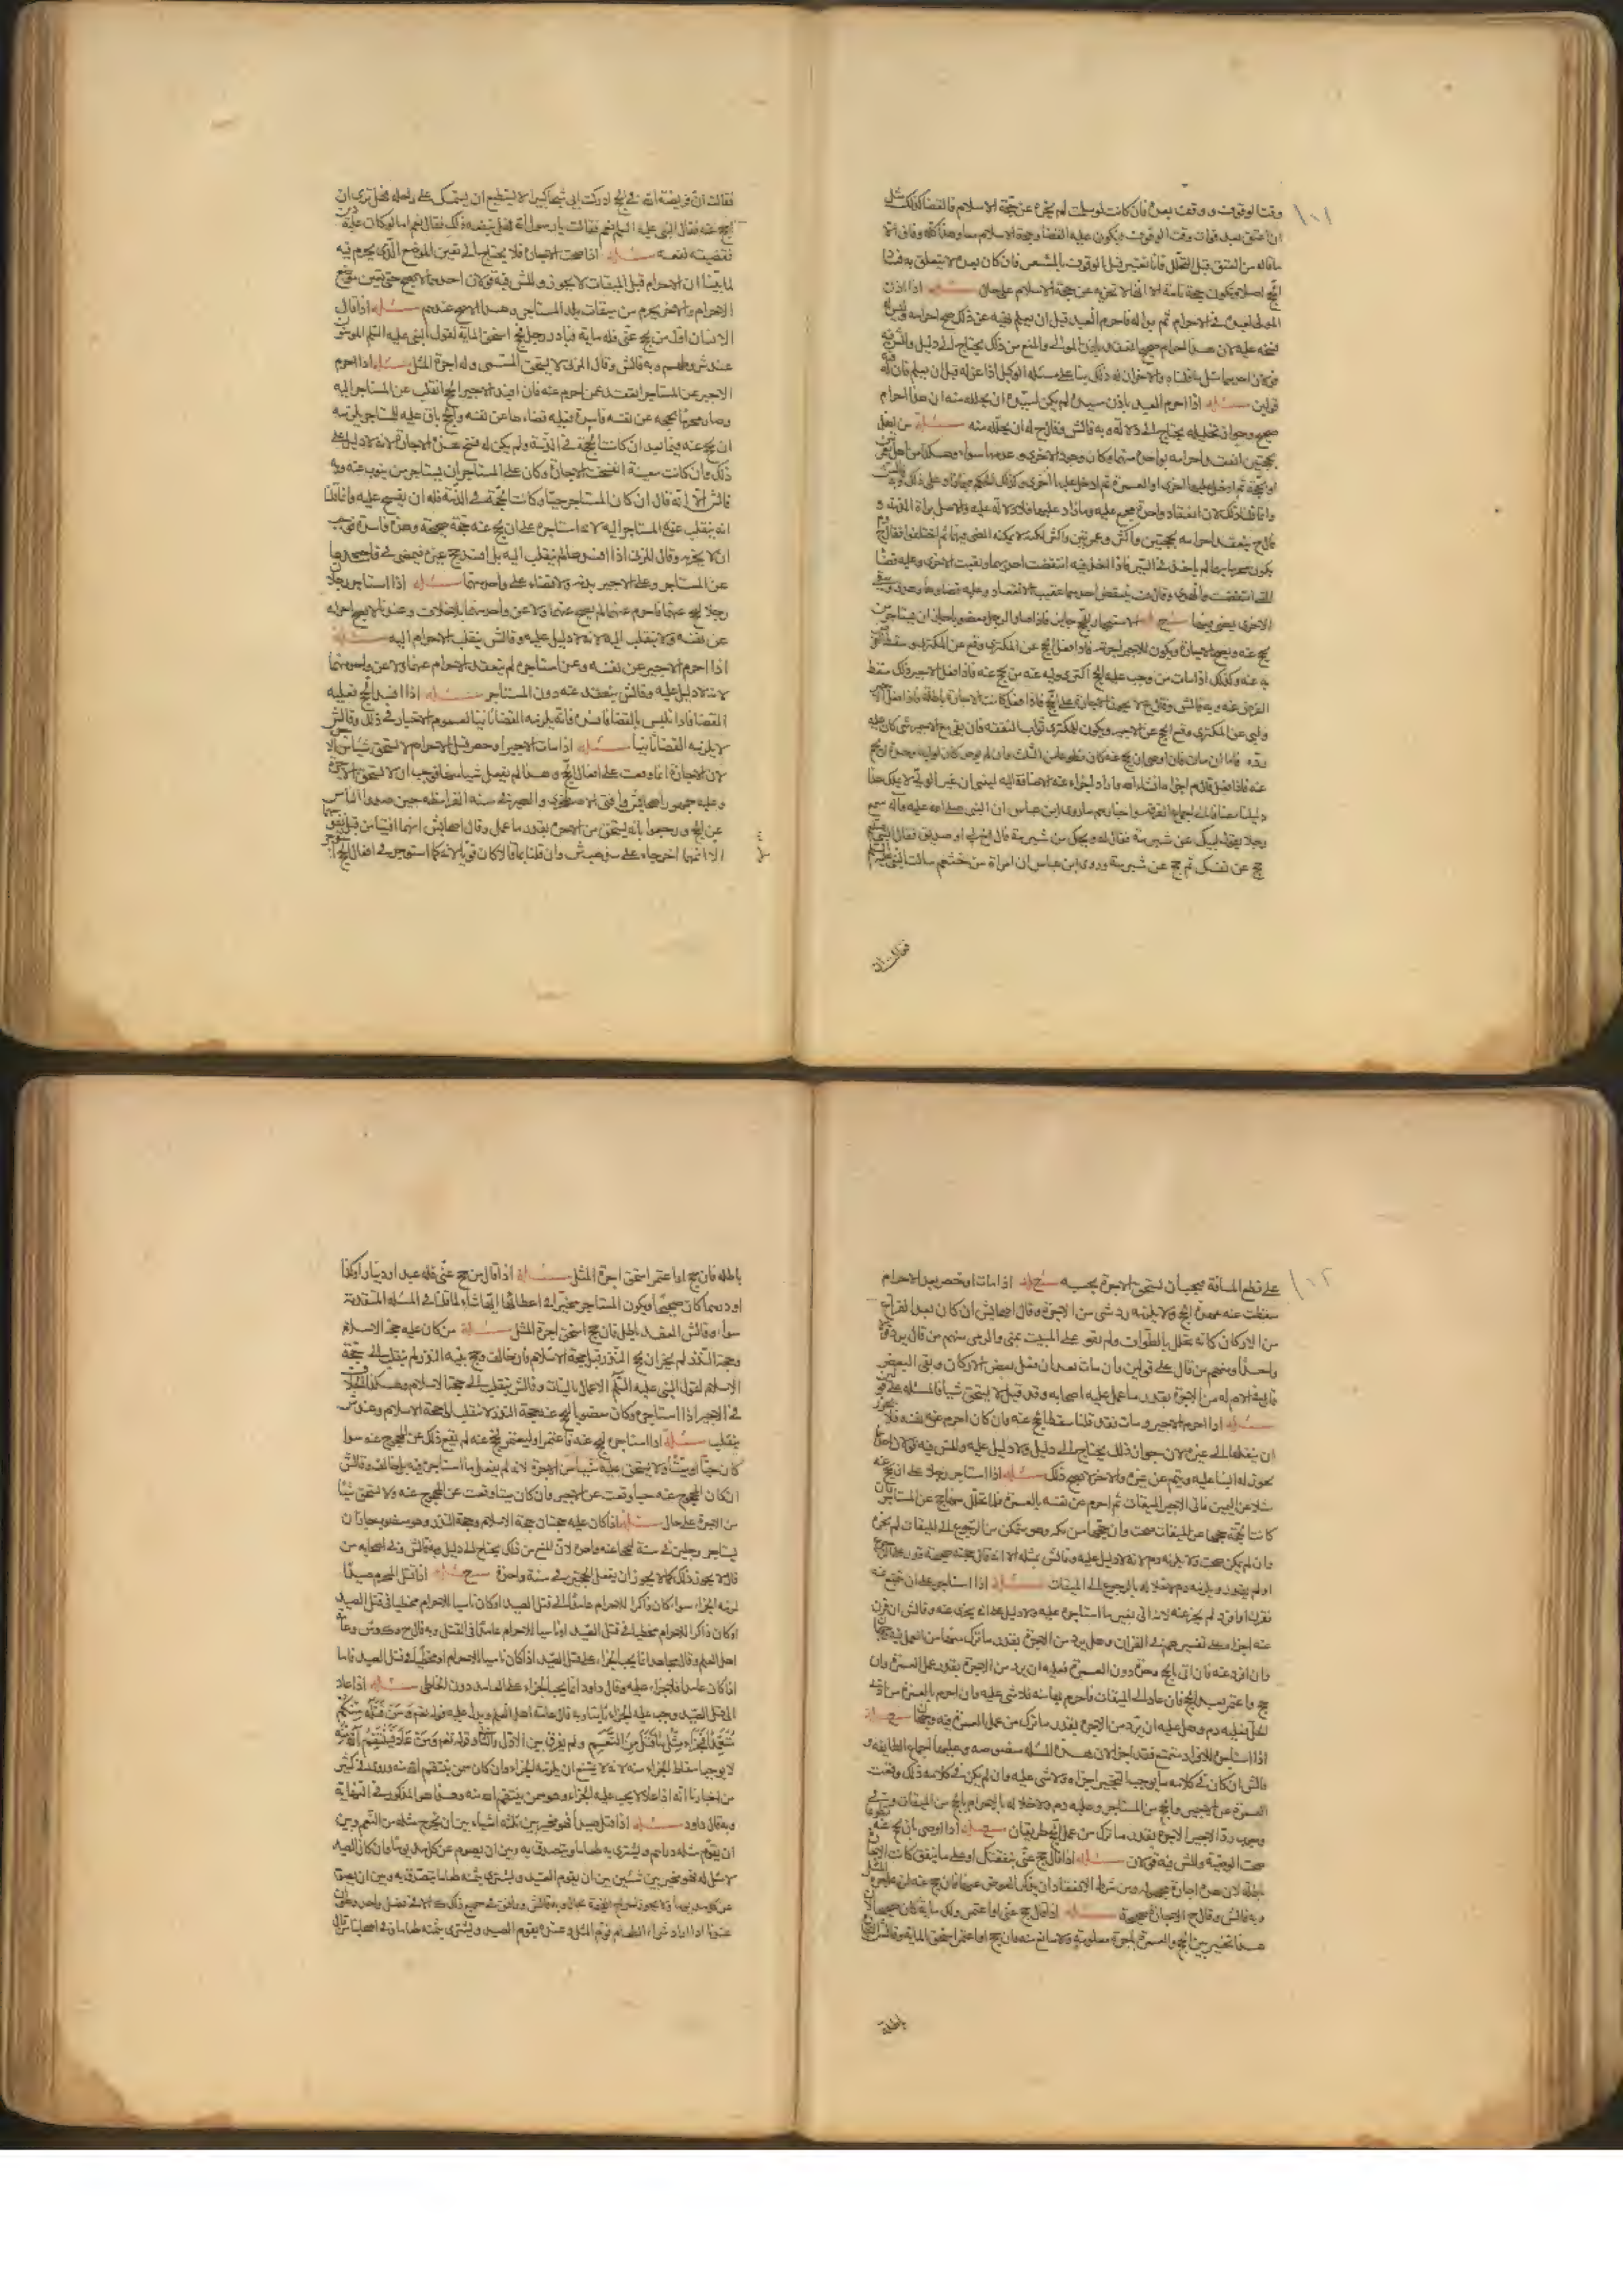 ١٠١
وقت الوقوف ووقف بعده فان كانت لو سلمت لم يجزه عن حجة الاسلام فالقضا كذلك مثل
ان اعتق بعد فوات وقت الوقوف ويكون عليه القضا وحجة الاسلام معا وهذا كله وفاق الا
الحج اصلا ويكون حجة تامة الا انها لا تجزيه عن حجة الاسلام على حال مسئلة اذا اذن
المولى لعبده في الاحرام ثم بدا له فاحرم العبد قبل ان يعلم نهيه عن ذلك صح احرامه وليس له
فسخه عليه لان هذا احرام صحيح انعقد باذن المولى والمنع من ذلك يحتاج الى دليل وللش فيه
قولان احدهما مثل ما قلناه والاخر ان له ذلك بنا على مسئلة الوكيل اذا عزله قبل ان يعلم فان له فيه
قولين مسئلة اذا احرم العبد باذن سيده لم يكن لسيده ان يحلله منه ان هذا احرام
صحيح وجواز تحليله يحتاج الى دلالة وبه قال ش وقال ح له ان يحلله منه مسئلة من اهل
بحجتين انعقد احرامه بواحدة منهما وكان وجود الاخرى وعدمها سواء وهكذا من اهل بعمرتين
او بحجة ثم ادخل عليها اخرى او العمرة ثم ادخل عليها اخرى وكذلك
وانما قلنا ذلك لان انعقاد واحدة مجمع عليه وما زاد عليها فلا دلالة عليه والاصل براة الذمة و
قال ح ينعقد احرامه بحجتين واكثر وعمرتين واكثر لكنه لا يمكنه المضي فيهما ثم اختلفوا فقال ح
يكون محرما بهما ما لم ياخذ في السير فاذا اخذ فيه انتقضت احدهما وبقيت الاخرى وعليه قضا
التي انتقضت والهدى وقال ف ينتقض احدهما عقيب الانعقاد وعليه قضاوها وهدى وبقي
الاخرى يمضي فيها مسئلة الاستيجار للحج جايز فاذا صار الرجل معضوبا جاز ان يستاجر من
يحج عنه ويصح الاجارة ويكون للاجير اجرته فاذا فعل الحج عن المكترى وقع عن المكترى وسقط الفرض
به عنه وكذلك اذا مات من وجب عليه الحج اكترى وليه عنه من يحج عنه فاذا فعل الاجير ذلك سقط
الفرض عنه وبه قال ش وقال ح لا يجوز الاجارة على الحج فاذا فعل كانت الاجارة باطلة فاذا فعل الاجير
ولبى عن المكترى وقع الحج عن الاجير ويكون للمكترى ثواب النفقة فان بقي مع الاجير شي كان عليه
رده فاما ان مات فان اوصى ان يحج عنه كان تطوعا من الثلث وان لم يوص كان لوليه
عنه فاذا فعل قال م اجزاه انشاء الله واراد اجزاه عنه الاضافة اليه
دليلنا مضافا الى اجماع الفرقة واخبارهم ما روى ابن عباس ان النبي صلى الله عليه واله سمع
رجلا يقول لبيك عن شبرمة فقال له ويحك من شبرمة قال اخ لي او صديق فقال النبي عليه السلم
حج عن نفسك ثم حج عن شبرمة وروى ابن عباس ان امراة من خثعم سالت النبي عليه السلم
فقالت ان
فقالت ان فريضة الله في الحج ادركت ابي شيخا كبيرا لا يستطيع ان يستمسك على راحلة فهل ترى ان
احج عنه فقال النبي عليه السلم نعم فقالت يا رسول الله فهل ينفعه ذلك فقال نعم اما لو كان عليه دين
فقضيته نفعه مسئلة اذا صحت الاجارة فلا يحتاج الى تعيين الموضع الذي يحرم فيه
لما بينا ان الاحرام قبل الميقات لا يجوز وللش فيه قولان احدهما لا يصح حتى يعين موضع
الاحرام والاخر يحرم من ميقات بلد المستاجر وهو الاصح عندهم مسئلة اذا قال
الانسان اول من يحج عني فله ماية فبادر رجل فحج استحق الماية لقول النبي عليه السلم المومنون
عند شروطهم وبه قال ش وقال المزني لا يستحق المسمى وله اجرة المثل مسئلة اذا احرم
الاجير عن المستاجر انعقد عمن احرم عنه فان افسد الاجير الحج انقلب عن المستاجر اليه
وصار محرما بحجه عن نفسه فاسدة فعليه قضاءها عن نفسه والحج باق عليه للمستاجر يلزمه
ان يحج عنه فيما بعد ان كانت الحجة في الذمة ولم يكن له فسخ هذه الاجارة لانه لا دليل على
ذلك وان كانت معينة انفسخت الاجارة وكان على المستاجر ان يستاجر من ينوب عنه وبه
قال ش الا انه قال ان كان المستاجر حيا وكانت الحجة في الذمة فله ان يفسخ عليه وانما قلنا
انه ينقلب عن المستاجر اليه لانه استاجره على ان يحج عنه حجة صحيحة وهذه فاسدة فيجب
ان لا يجزيه وقال المزني اذا افسدها لم ينقلب اليه بل افسد حج غيره فيمضي في فاسدها
عن المستاجر وعلى الاجير بدنة ولا قضاء على واحد منهما مسئلة اذا استاجر رجلان
رجلا ليحج عنهما فاحرم عنهما لم يصح عنهما ولا عن واحد منهما بلا خلاف وعندنا لا يصح احرامه
عن نفسه ولا ينقلب اليه لانه لا دليل عليه وقال ش ينقلب الاحرام اليه مسئلة
اذا احرم الاجير عن نفسه وعن استاجره لم ينعقد الاحرام عنهما ولا عن واحد منهما
لانه لا دليل عليه وقال ش ينعقد عنه دون المستاجر مسئلة اذا افسد الحج فعليه
القضا فاذا تلبس بالقضا فافسده فانه يلزمه القضا ثانيا لعموم الاخبار في ذلك وقال ش
لا يلزمه القضا ثانيا مسئلة اذا مات الاجير او احصر قبل الاحرام لا يستحق شيا من الاجرة
لان الاجارة انما وقعت على افعال الحج وهذا لم يفعل شيا منها فوجب ان لا يستحق الاجرة
وعليه جمهور اصحاب ش وافتى الاصطخري والصيرفي سنة القرامطة حين صدوا الناس
عن الحج ورجعوا بانه يستحق من الاجرة بقدر ما عمل وقال اصحاب ش انهما افتيا من قبل نفوسهما
الا انهما اخرجاه على مذهب ش وان قلنا بما قالا كان قويا لانه كما استوجر في افعال الحج
١٠٢
على قطع المسافة فيجب ان يستحق الاجرة بحسبه مسئلة اذا مات او احصر بعد الاحرام
سقطت عنه عهدة الحج ولا يلزمه رد شي من الاجرة وقال اصحاب ش ان كان بعد الفراغ
من الاركان كانه تحلل بالطواف ولم يقو على المبيت بمنى والرمى منهم من قال يرد قولا
واحدا ومنهم من قال على قولين وان مات بعد ان فعل بعض الاركان وبقي البعض
قال في الام له من الاجرة بقدر ما عمل وعليه اصحابه وقد قيل لا يستحق شيا فالمسئلة على قولين
مسئلة اذا احرم الاجير ومات فقد قلنا سقط الحج عنه وان كان احرم عن نفسه فلا يجوز
ان ينقلها الى غيره لان جواز ذلك يحتاج الى دليل ولا دليل عليه وللش فيه قولان احدهما
يجوز له البنا عليه ويتم عن غيره والاخر لا يصح ذلك مسئلة اذا استاجر رجلا على ان يحج عنه
مثلا من اليمن فاتى الاجير الميقات ثم احرم عن نفسه بالعمرة فلما تحلل منها حج عن المستاجر فان
كانت الحجة حجها من الميقات صحت وان حجها من مكة وهو متمكن من الرجوع الى الميقات لم يجزه
وان لم يمكن صحت ولا يلزمه دم لانه لا دليل عليه وقال ش مثله الا انه قال حجته صحيحة قدر على الرجوع
او لم يقدر ويلزمه دم لاخلاله بالرجوع الى الميقات مسئلة اذا استاجره على ان يتمتع عنه
فقرن او افرد لم يجز عنه لانه اتى بغير ما استاجره عليه ولا دليل على انه يجزي عنه وقال ش ان قرن
عنه اجزاه على تفسيرهم في القران وهل يرد من الاجرة بقدر ما ترك منهما من العمل فيه وجهان
وان افرد عنه فان اتى بالحج وحده دون العمرة فعليه ان يرد من الاجرة بقدر عمل العمرة وان
حج واعتمر بعد الحج فان عاد الى الميقات فاحرم بها منه فلا شي عليه وان احرم بالعمرة من ادنى
الحل فعليه دم وهل عليه ان يرد من الاجرة بقدر ما ترك من عمل العمرة فيه وجهان مسئلة
اذا استاجره للافراد فتمتع فقد اجزاه لان هذه المسئلة منصوصة وعليها اجماع الطايفة و
قال ش ان كان في كلامه ما يوجب التخيير اجزاه ولا شي عليه وان لم يكن في كلامه ذلك وقعت
العمرة عن الاجير والحج عن المستاجر وعليه دم لاخلاله بالاحرام بالحج من الميقات وفي
وجوب رد الاجير الاجرة بقدر ما ترك من عمل الحج طريقان مسئلة اذا اوصى بان يحج عنه تطوعا
صحت الوصية وللش فيه قولان مسئلة اذا قال حج عني بنفقتك او على ما ينفق كانت الاجارة
باطلة لان هذه اجارة مجهولة ومن شرط الانعقاد ان يذكر العوض معينا فان حج عنه لزمه اجرة المثل
وبه قال ش وقال ح الاجارة صحيحة مسئلة اذا قال حج عني او اعتمر ولك ماية كان صحيحا لان
هذا تخيير بين الحج والعمرة باجرة معلومة ولا مانع منه فان حج او اعتمر استحق الماية وقال ش
باطلة
باطلة فان حج او اعتمر استحق اجرة المثل مسئلة اذا قال من حج عني فله عبد او دينار او كذا
او درهم كان صحيحا ويكون المستاجر مخيرا في اعطائها ايها شاء لما قلناه في المسئلة المتقدمة
سواء وقال ش العقد باطل فان حج استحق اجرة المثل مسئلة من كان عليه حجة الاسلام
وحجة النذر لم يجز ان يحج المنذور قبل حجة الاسلام فان خالف وحج بنية النذر لم ينقلب الى حجة
الاسلام لقول النبي عليه السلم الاعمال بالنيات وقال ش ينقلب الى حجة الاسلام وهكذا الخلاف
في الاجير اذا استاجره وكان معضوبا ليحج عنه حجة النذر لا تنقلب الى حجة الاسلام وعند ش
ينقلب مسئلة اذا استاجره ليحج عنه فاعتمر او ليعتمر فحج عنه لم يقع ذلك عن المحجوج عنه سوا
كان حيا او ميتا ولا يستحق عليه شيا من الاجرة لانه لم يفعل ما استاجره فيه بل خالف وقال ش
ان كان المحجوج عنه حيا وقعت عن الاجير وان كان ميتا وقعت عن المحجوج عنه ولا يستحق شيا
من الاجرة على حال مسئلة اذا كان عليه حجتان حجة الاسلام وحجة النذر وهو معضوب جاز ان
يستاجر رجلين في سنة ليحجا عنه واحدة لان المنع من ذلك يحتاج الى دليل وبه قال ش وفي اصحابه من
قال لا يجوز ذلك كما لا يجوز ان يفعل الحجتين في سنة واحدة مسئلة اذا قتل المحرم صيدا
لزمه الجزاء سوا كان ذاكرا للاحرام عامدا الى قتل الصيد او كان ناسيا للاحرام مخطيا في قتل الصيد
او كان ذاكرا للاحرام مخطيا في قتل الصيد او ناسيا للاحرام عامدا في القتل وبه قال ح و ك و ش وعامة
اهل العلم وقال مجاهد انما يجب الجزاء على قتل الصيد اذا كان ناسيا للاحرام او مخطيا في قتل الصيد فاما
اذا كان عامدا فلا جزاء عليه وقال داود انما يجب الجزاء على العامد دون الخاطي مسئلة اذا عاد
الى قتل الصيد وجب عليه الجزاء ثانيا وبه قال عامة اهل العلم ويدل عليه قوله تعم وَمَنْ قَتَلَهُ مِنْكُمْ
مُتَعَمِّدًا فَجَزَاءٌ مِثْلُ مَا قَتَلَ مِنَ النَّعَمِ ولم يفرق بين الاول والثاني وقوله تعم وَمَنْ عَادَ فَيَنْتَقِمُ اللهُ مِنْهُ
لا يوجب اسقاط الجزاء منه لانه لا يمتنع ان يلزمه الجزاء وان كان ممن ينتقم الله منه وروى في كثير
من اخبارنا انه اذا عاد لا يجب عليه الجزاء وهو ممن ينتقم الله منه وهذا هو المذكور في النهاية
وبه قال داود مسئلة اذا قتل صيدا فهو مخير بين ثلثة اشياء بين ان يخرج مثله من النعم وبين
ان يقوم مثله دراهم ويشتري به طعاما ويتصدق به وبين ان يصوم عن كل مد يوما وان كان الصيد
لا مثل له فهو مخير بين شيئين بين ان يقوم الصيد ويشتري بثمنه طعاما يتصدق به وبين ان يصوم
عن كل مد يوما ولا يجوز اخراج القيمة بحال وبه قال ش ووافق في جميع ذلك ك الا في فصل واحد وهو ان
عندنا اذا اراد شراء الطعام قوم المثل وعنده يقوم الصيد ويشتري بثمنه طعاما وفي اصحابنا من قال